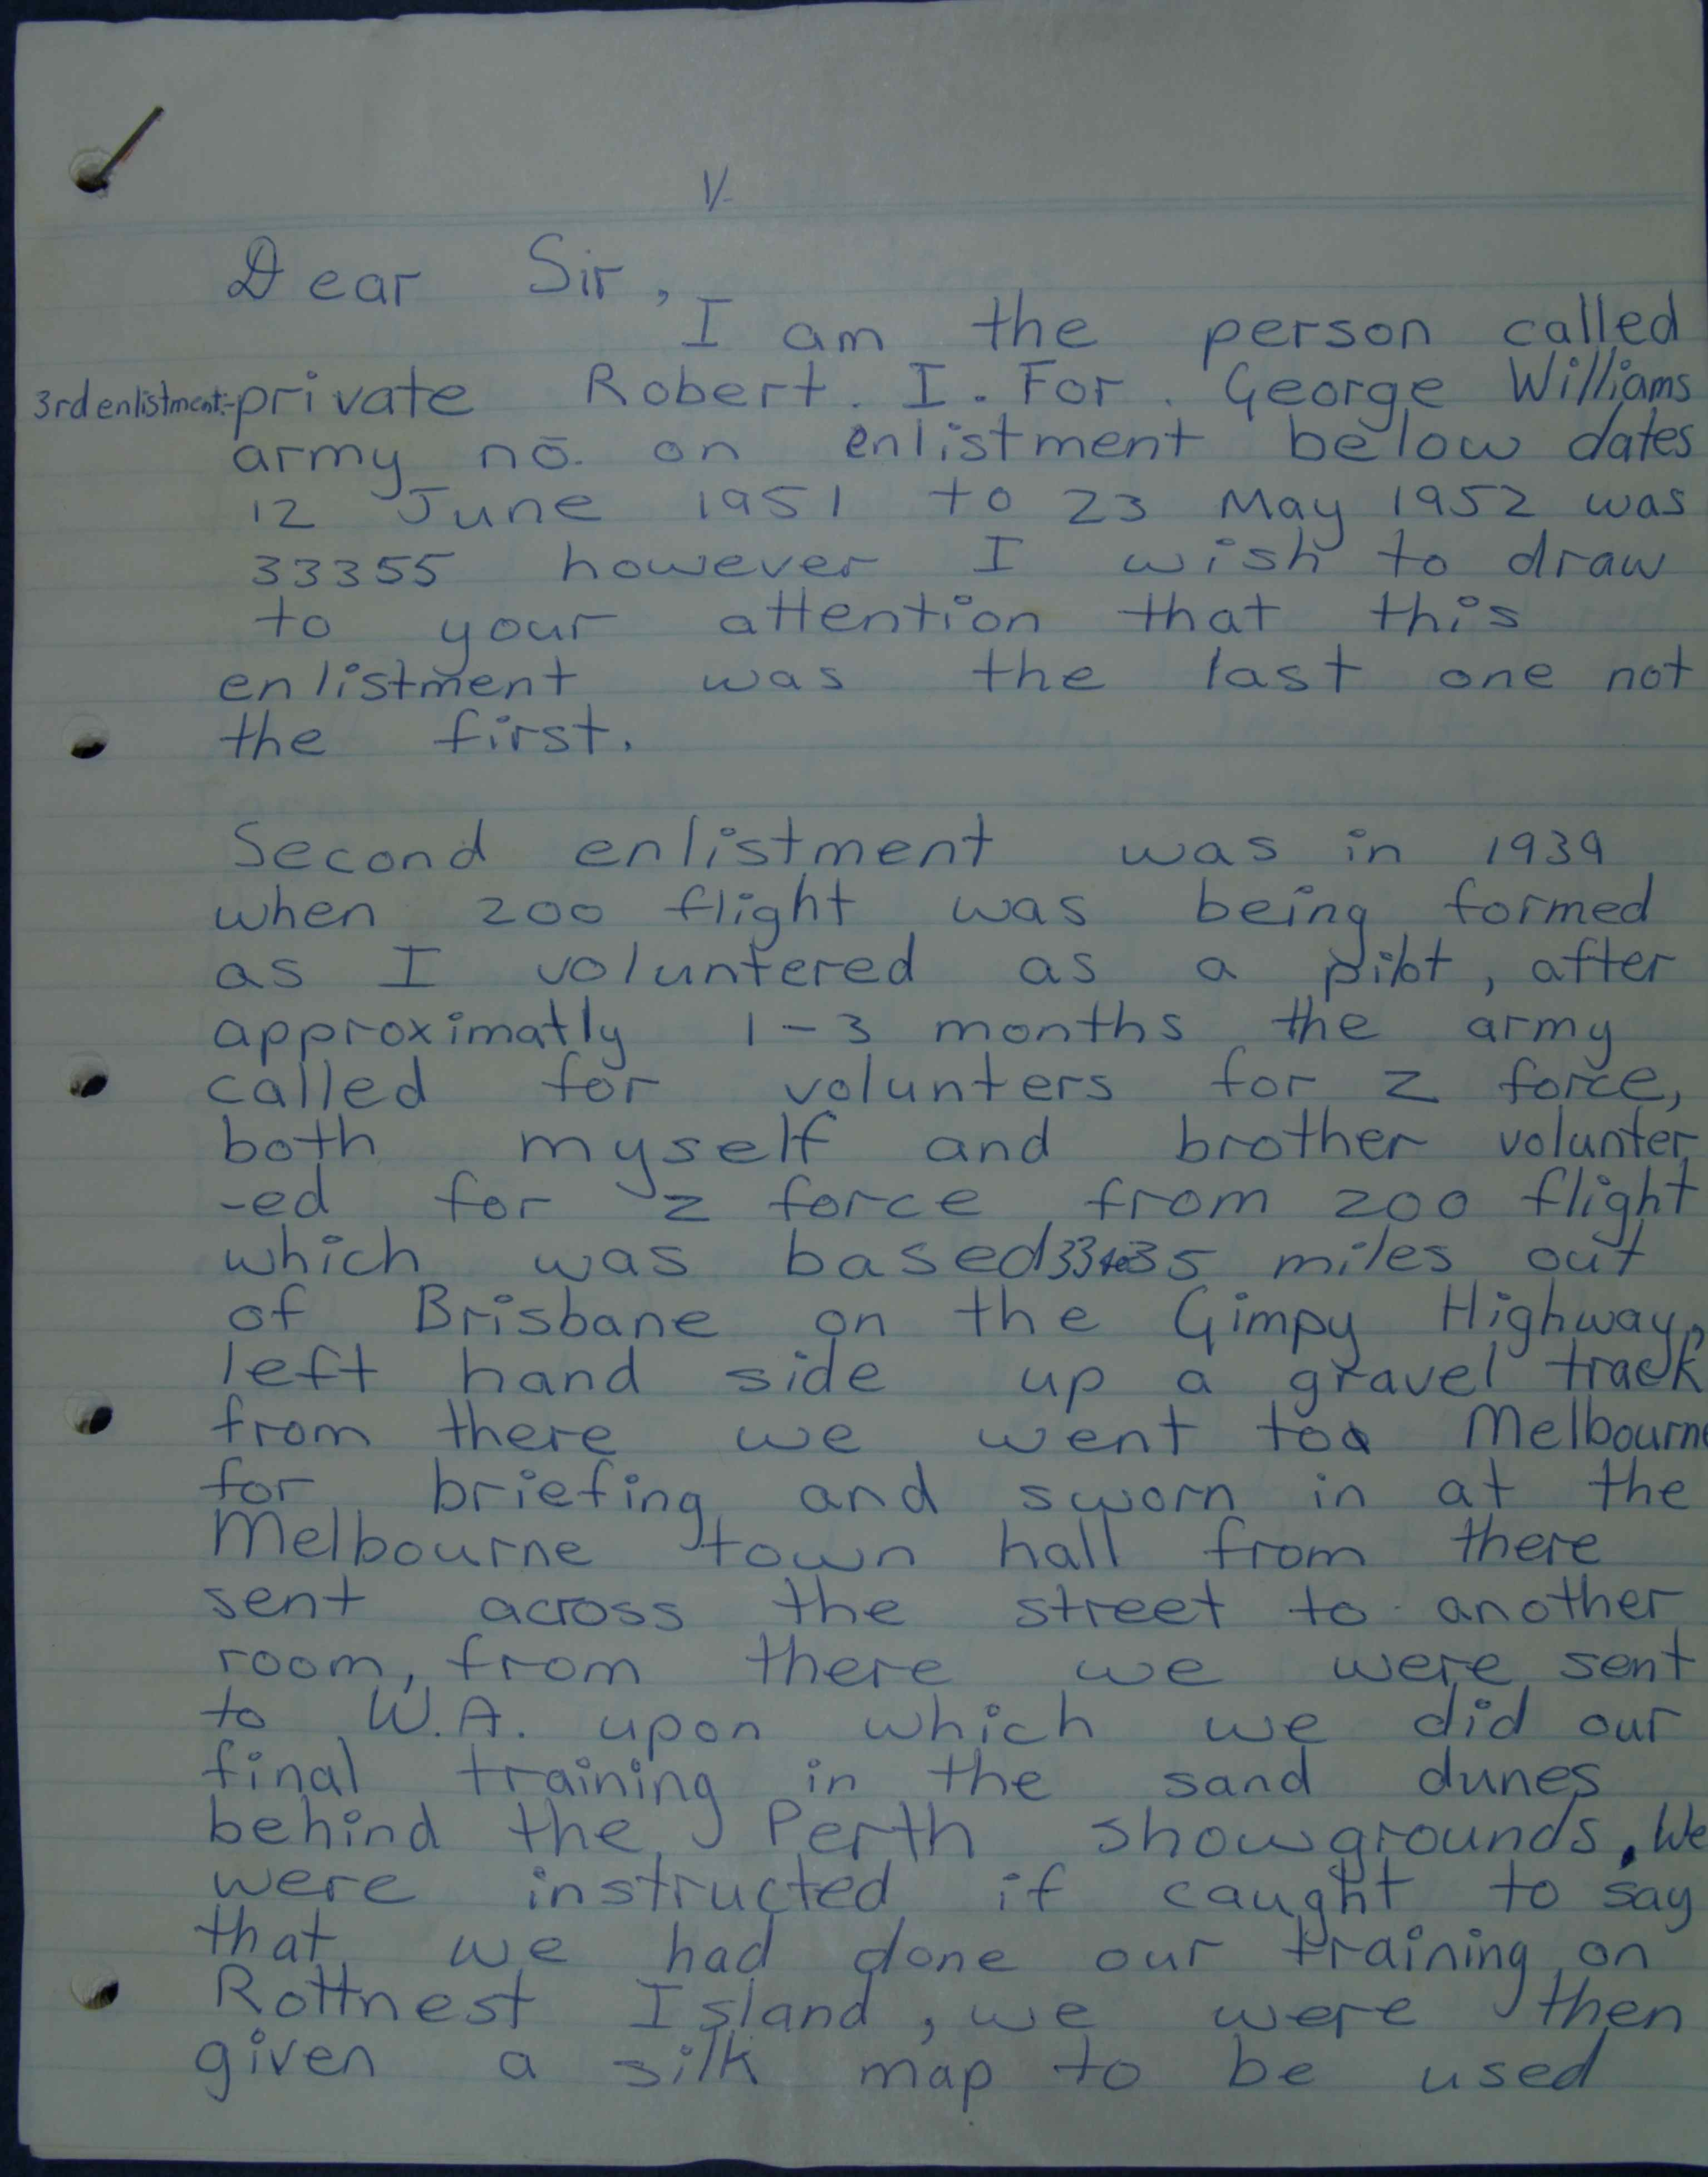 1/-
Dear Sir,
I am the person called
3rd enlistment:- private Robert. I. For. George Williams
army no. on enlistment below dates
12 June 1951 to 23 May 1952 was
33355 however I wish to draw
to your attention that this
enlistment was the last one not
the first.
Second enlistment was in 1939
when 200 flight was being formed
as I voluntered as a pilot, after
approximatly 1-3 months the army
called for volunters for Z force,
both myself and brother volunter
-ed for Z force from 200 flight
which was based 33 to 35 miles out
of Brisbane on the Gimpy Highway,
left hand side up a gravel track
from there we went too Melbourne
for briefing and sworn in at the
Melbourne town hall from there
sent across the street to another
room, from there we were sent
to W.A. upon which we did our
final training in the sand dunes
behind the Perth showgrounds. We
were instructed if caught to say
that we had done our training on
Rottnest Island, we were then
given a silk map to be used